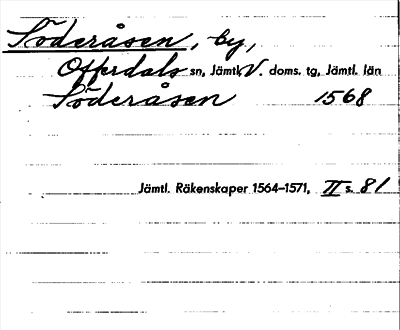 Söderåsen, by,
Offerdals sn, Jämtl. V. doms. tg, Jämtl. län
Söderåsen 1568
Jämtl. Räkenskaper 1564–1571, II s. 81